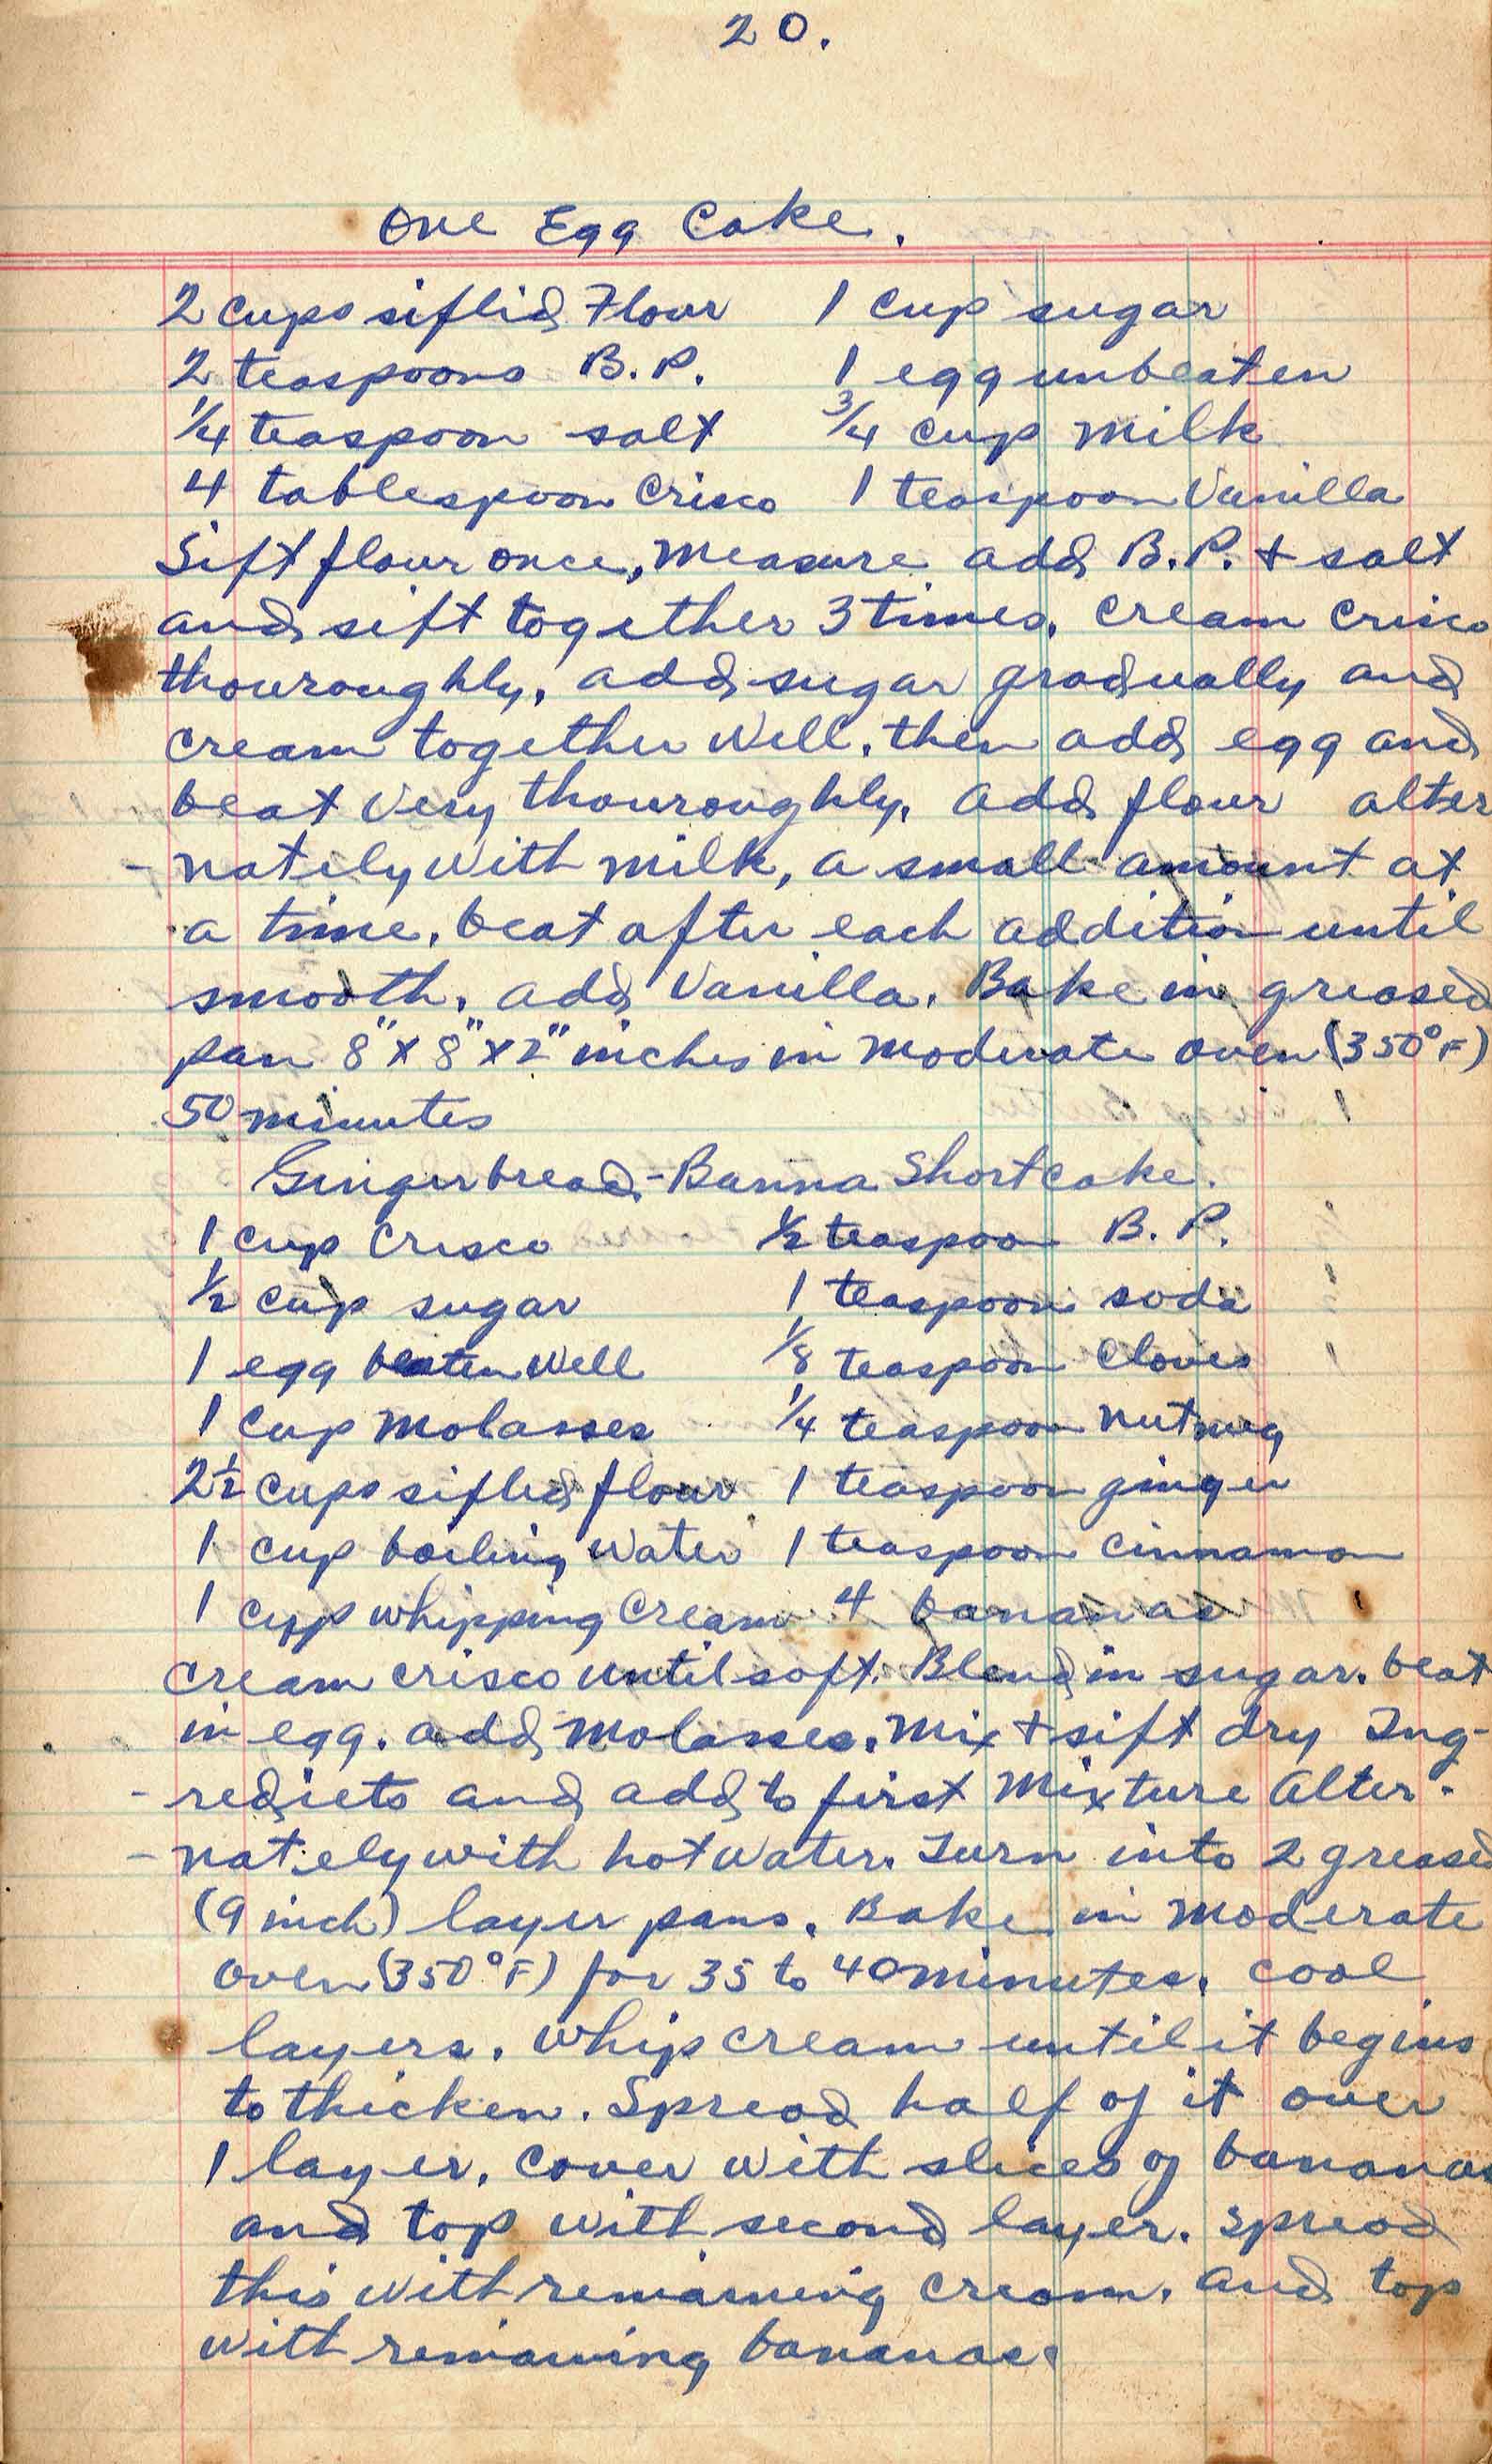 20.
One Egg Cake.
2 cups sifted Flour 1 cup sugar
2 teaspoons B.P. 1 egg unbeaten
1/4 teaspoon salt 3/4 cup milk
4 tablespoon Crisco 1 teaspoon Vanilla
Sift flour once, measure add B.P. + salt
and sift together 3 times. Cream Crisco
thouroughly, add sugar gradually and
cream together well. then add egg and
beat very thouroughly. add flour alter
- nately with milk, a small amount at
a time. beat after each addition until
smooth. add Vanilla. Bake in greased
pan 8" x 8" x 2" inches in moderate oven (350°F)
50 minutes
Gingerbread - Banna Shortcake.
1 cup Crisco 1/2 teaspoon B.P.
1/2 cup sugar 1 teaspoon soda
1 egg beaten well 1/8 teaspoon Cloves
1 cup molasses 1/4 teaspoon nutmeg
2 1/2 cups sifted flour 1 teaspoon ginger
1 cup boiling water 1 teaspoon cinnamon
1 cup whipping cream 4 bananas
cream crisco until soft. Blend in sugar. beat
in egg. add molasses. Mix + sift dry Ing-
- rediets and add to first mixture alter-
- nately with hot water. Turn into 2 greased
(9 inch) layer pans. Bake in moderate
oven (350°F) for 35 to 40 minutes. cool
layers. Whip cream until it begins
to thicken. Spread half of it over
1 layer. cover with slices of bananas
and top with second layer. spread
this with remaining cream. and top
with remaining bananas.